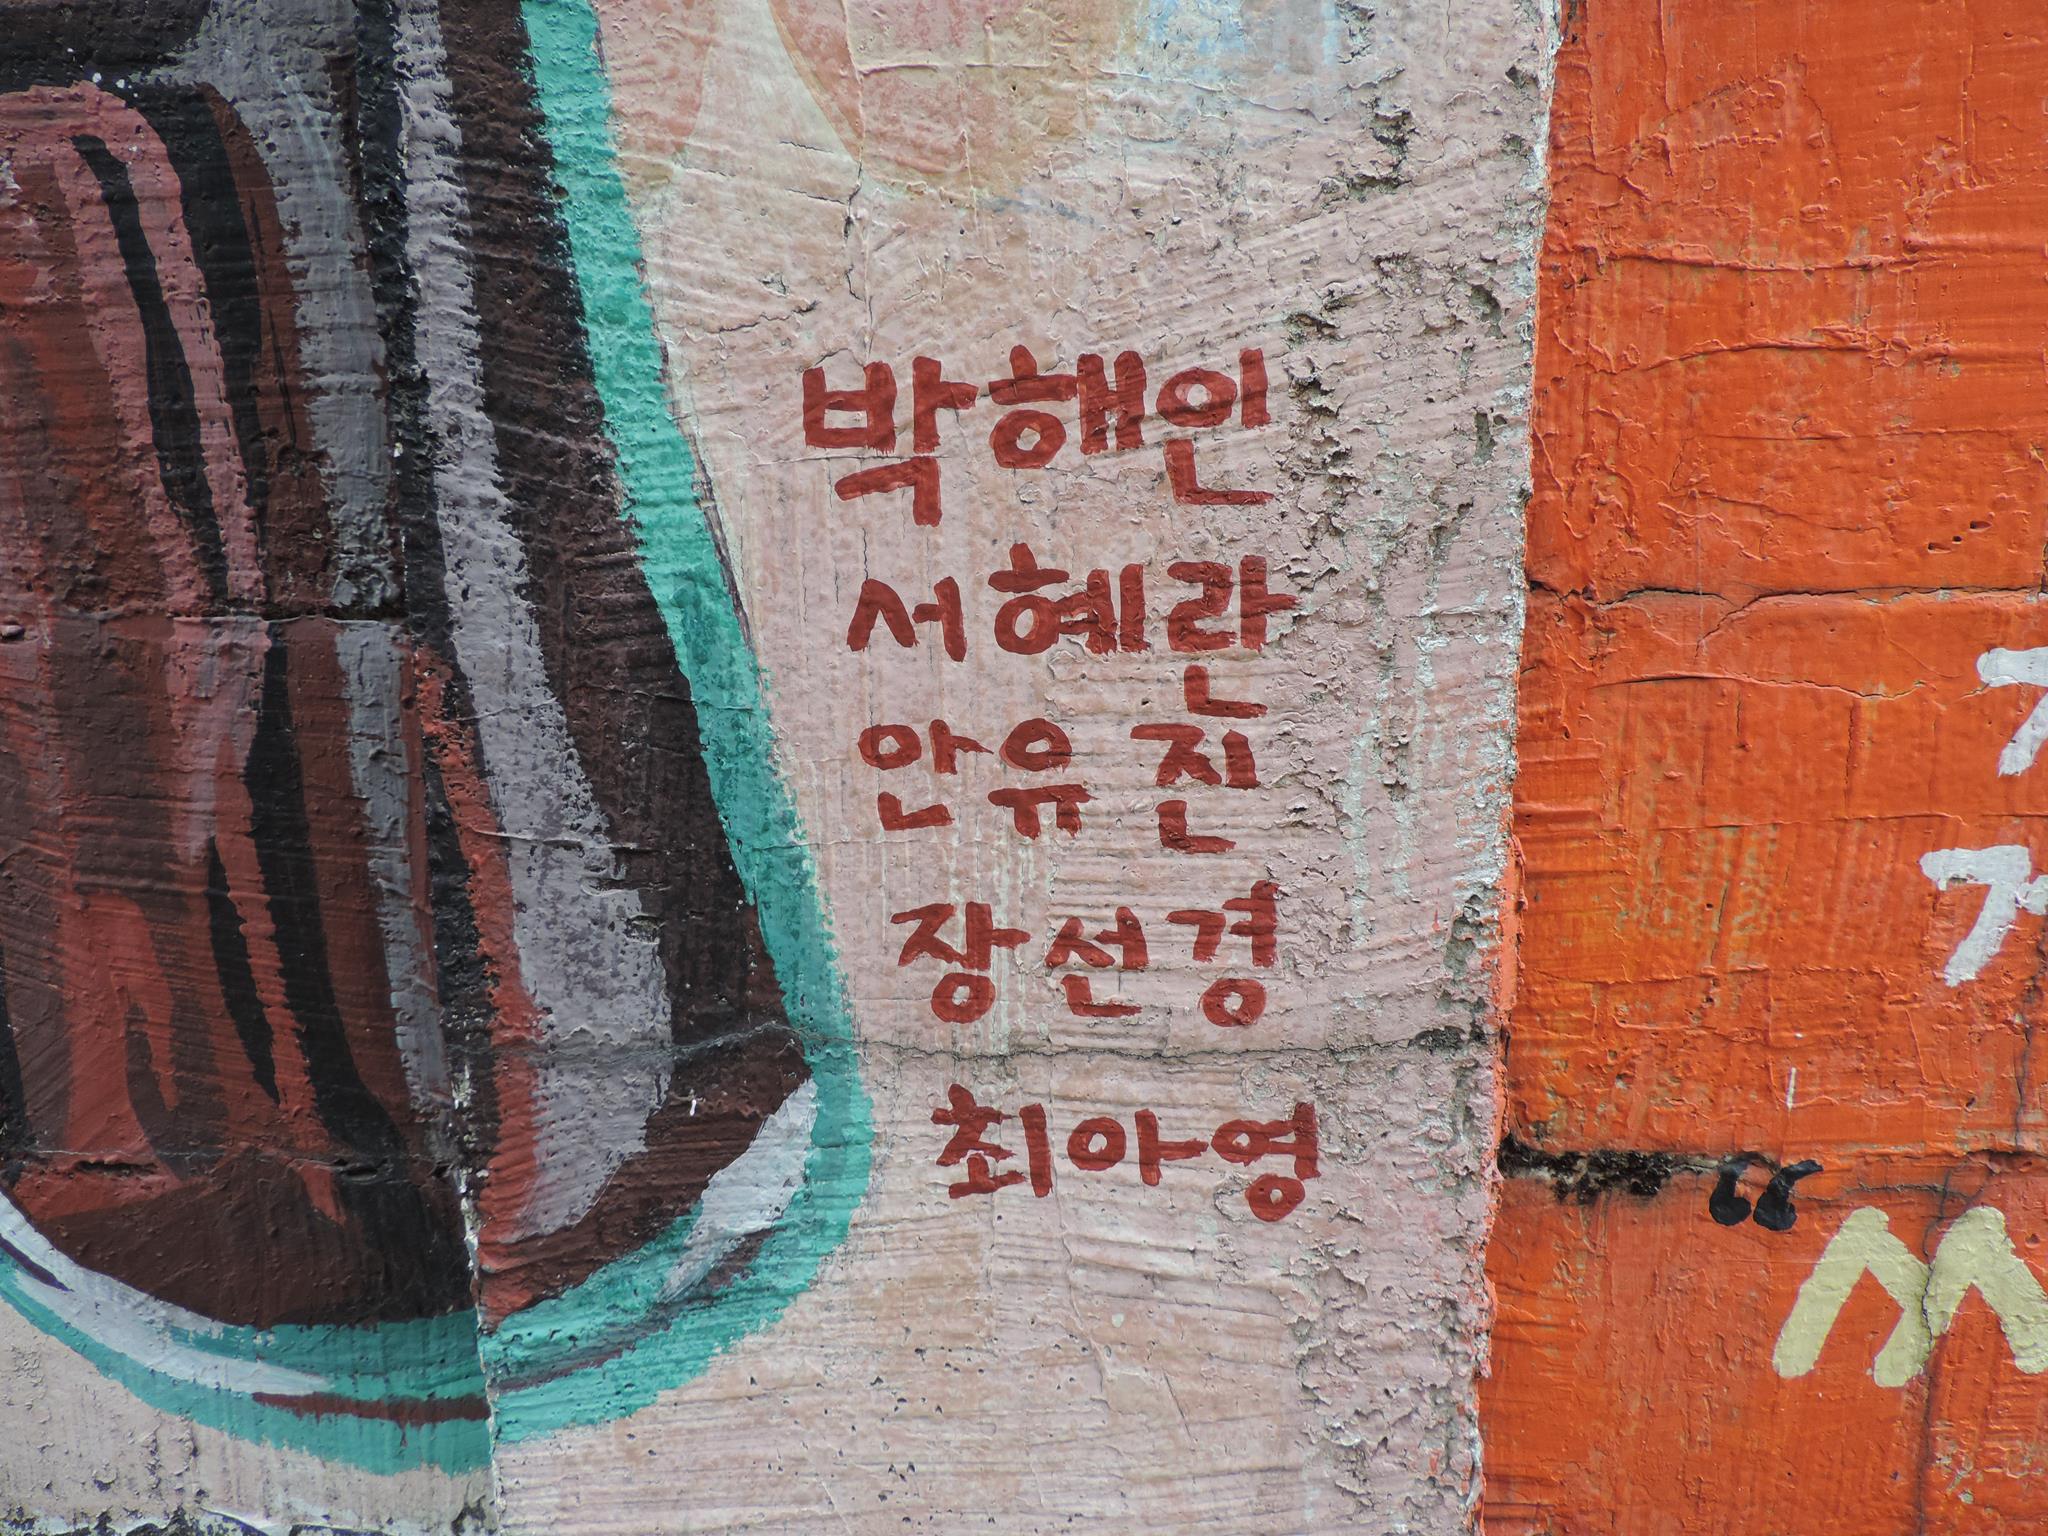 박해인
서혜란
안유진
장선경
최아영
“M